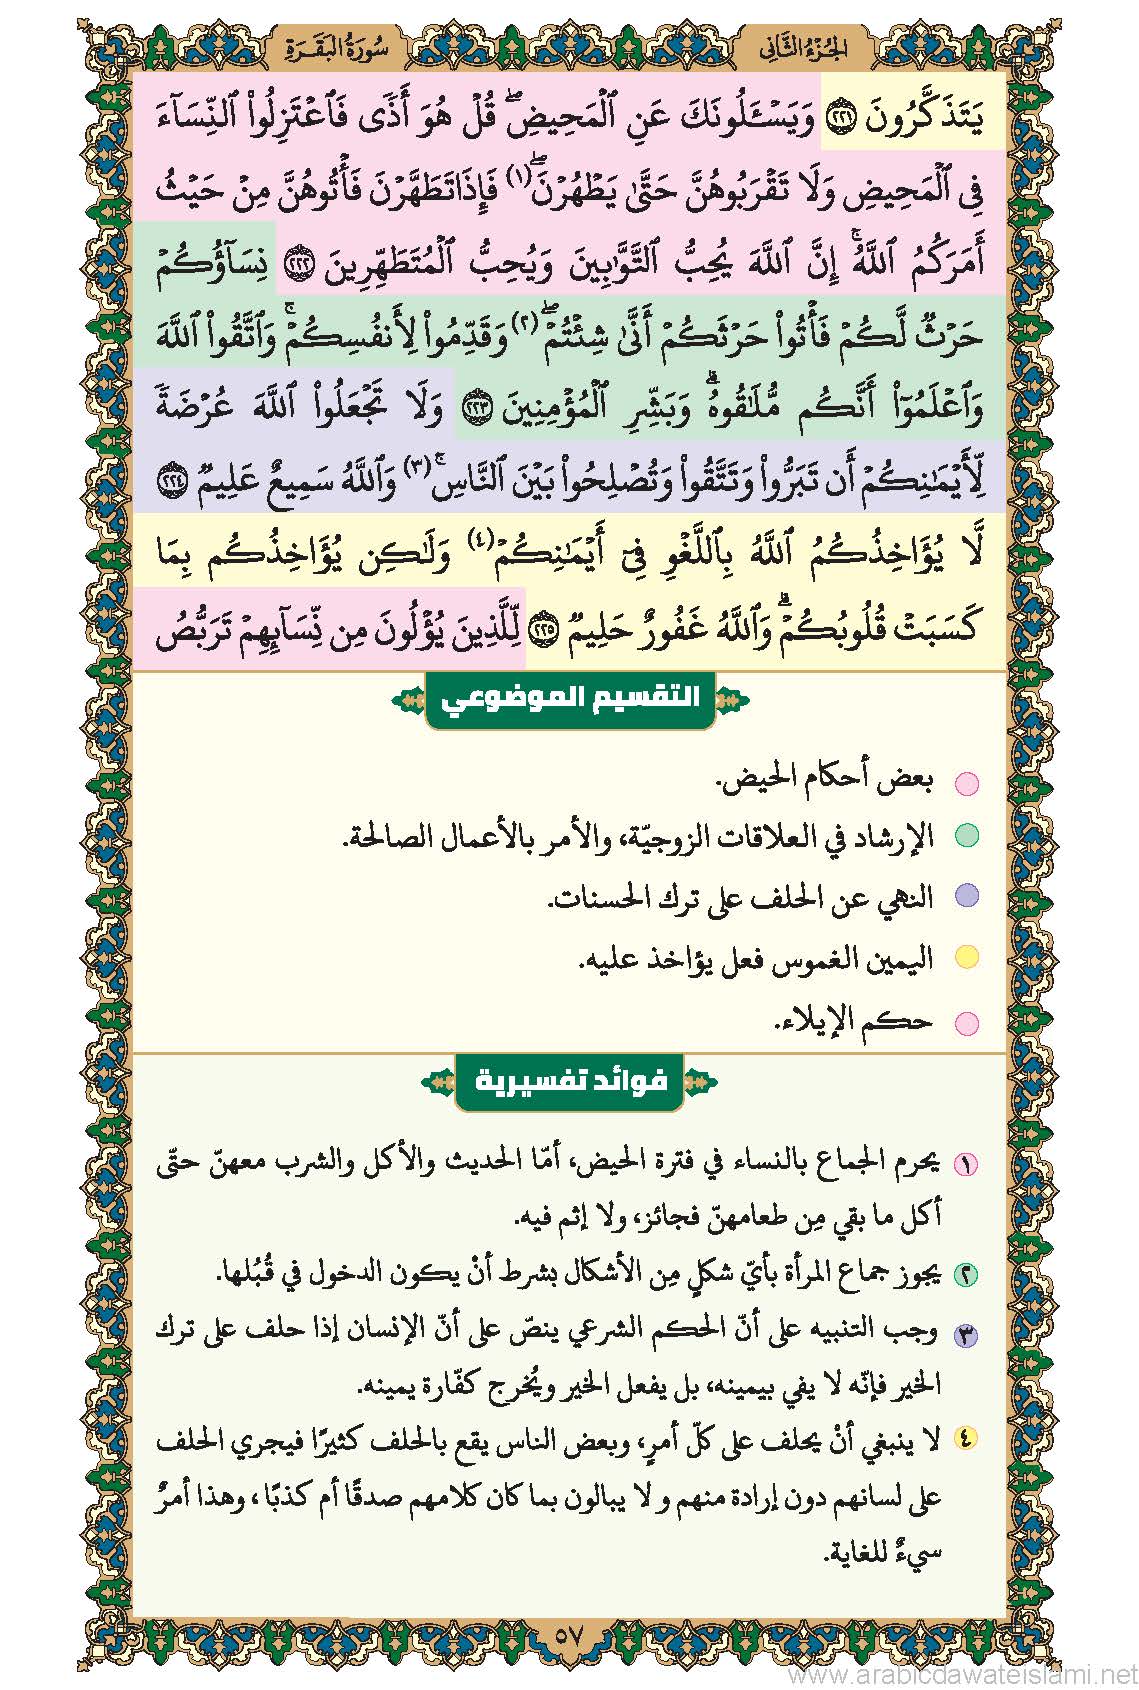 الجُزْءُ الثَّانِي
سُورَةُ البَقَرَةِ
يَتَذَكَّرُونَ ٢٢١ وَيَسْـَٔلُونَكَ عَنِ ٱلْمَحِيضِۖ قُلْ هُوَ أَذًى فَٱعْتَزِلُوا۟ ٱلنِّسَآءَ
فِى ٱلْمَحِيضِ وَلَا تَقْرَبُوهُنَّ حَتَّىٰ يَطْهُرْنَۖ(١) فَإِذَا تَطَهَّرْنَ فَأْتُوهُنَّ مِنْ حَيْثُ
أَمَرَكُمُ ٱللَّهُۚ إِنَّ ٱللَّهَ يُحِبُّ ٱلتَّوَّٰبِينَ وَيُحِبُّ ٱلْمُتَطَهِّرِينَ ٢٢٢ نِسَآؤُكُمْ
حَرْثٌ لَّكُمْ فَأْتُوا۟ حَرْثَكُمْ أَنَّىٰ شِئْتُمْۖ(٢) وَقَدِّمُوا۟ لِأَنفُسِكُمْۚ وَٱتَّقُوا۟ ٱللَّهَ
وَٱعْلَمُوٓا۟ أَنَّكُم مُّلَٰقُوهُۗ وَبَشِّرِ ٱلْمُؤْمِنِينَ ٢٢٣ وَلَا تَجْعَلُوا۟ ٱللَّهَ عُرْضَةً
لِّأَيْمَٰنِكُمْ أَن تَبَرُّوا۟ وَتَتَّقُوا۟ وَتُصْلِحُوا۟ بَيْنَ ٱلنَّاسِۚ(٣) وَٱللَّهُ سَمِيعٌ عَلِيمٌ ٢٢٤
لَّا يُؤَاخِذُكُمُ ٱللَّهُ بِٱللَّغْوِ فِىٓ أَيْمَٰنِكُمْ(٤) وَلَٰكِن يُؤَاخِذُكُم بِمَا
كَسَبَتْ قُلُوبُكُمْۗ وَٱللَّهُ غَفُورٌ حَلِيمٌ ٢٢٥ لِّلَّذِينَ يُؤْلُونَ مِن نِّسَآئِهِمْ تَرَبُّصُ
التقسيم الموضوعي
بعض أحكام الحيض.
الإرشاد في العلاقات الزوجيّة، والأمر بالأعمال الصالحة.
النهي عن الحلف على ترك الحسنات.
اليمين الغموس فعل يؤاخذ عليه.
حكم الإيلاء.
فوائد تفسيرية
١ يحرم الجماع بالنساء في فترة الحيض، أمّا الحديث والأكل والشرب معهنّ حتّى
أكل ما بقي مِن طعامهنّ فجائز، ولا إثم فيه.
٢ يجوز جماع المرأة بأيّ شكلٍ مِن الأشكال بشرط أنْ يكون الدخول في قُبُلها.
٣ وجب التنبيه على أنّ الحكم الشرعي ينصّ على أنّ الإنسان إذا حلف على ترك
الخير فإنّه لا يفي بيمينه، بل يفعل الخير ويُخرج كفّارة يمينه.
٤ لا ينبغي أنْ يحلف على كلّ أمرٍ، وبعض الناس يقع بالحلف كثيرًا فيجري الحلف
على لسانهم دون إرادة منهم و لا يبالون بما كان كلامهم صدقًا أم كذبًا، وهذا أمرٌ
سيءٌ للغاية.
٥٧
www.arabicdawateislami.net